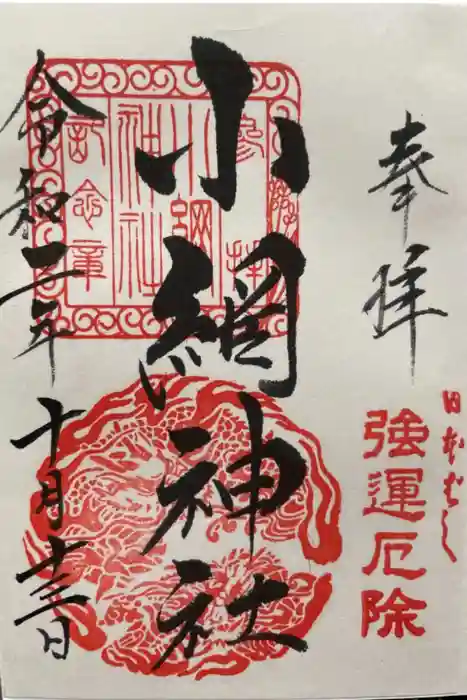 奉拝
日本ばし
強運厄除
小網神社
小網
神社
記念章
令和二年十月十三日